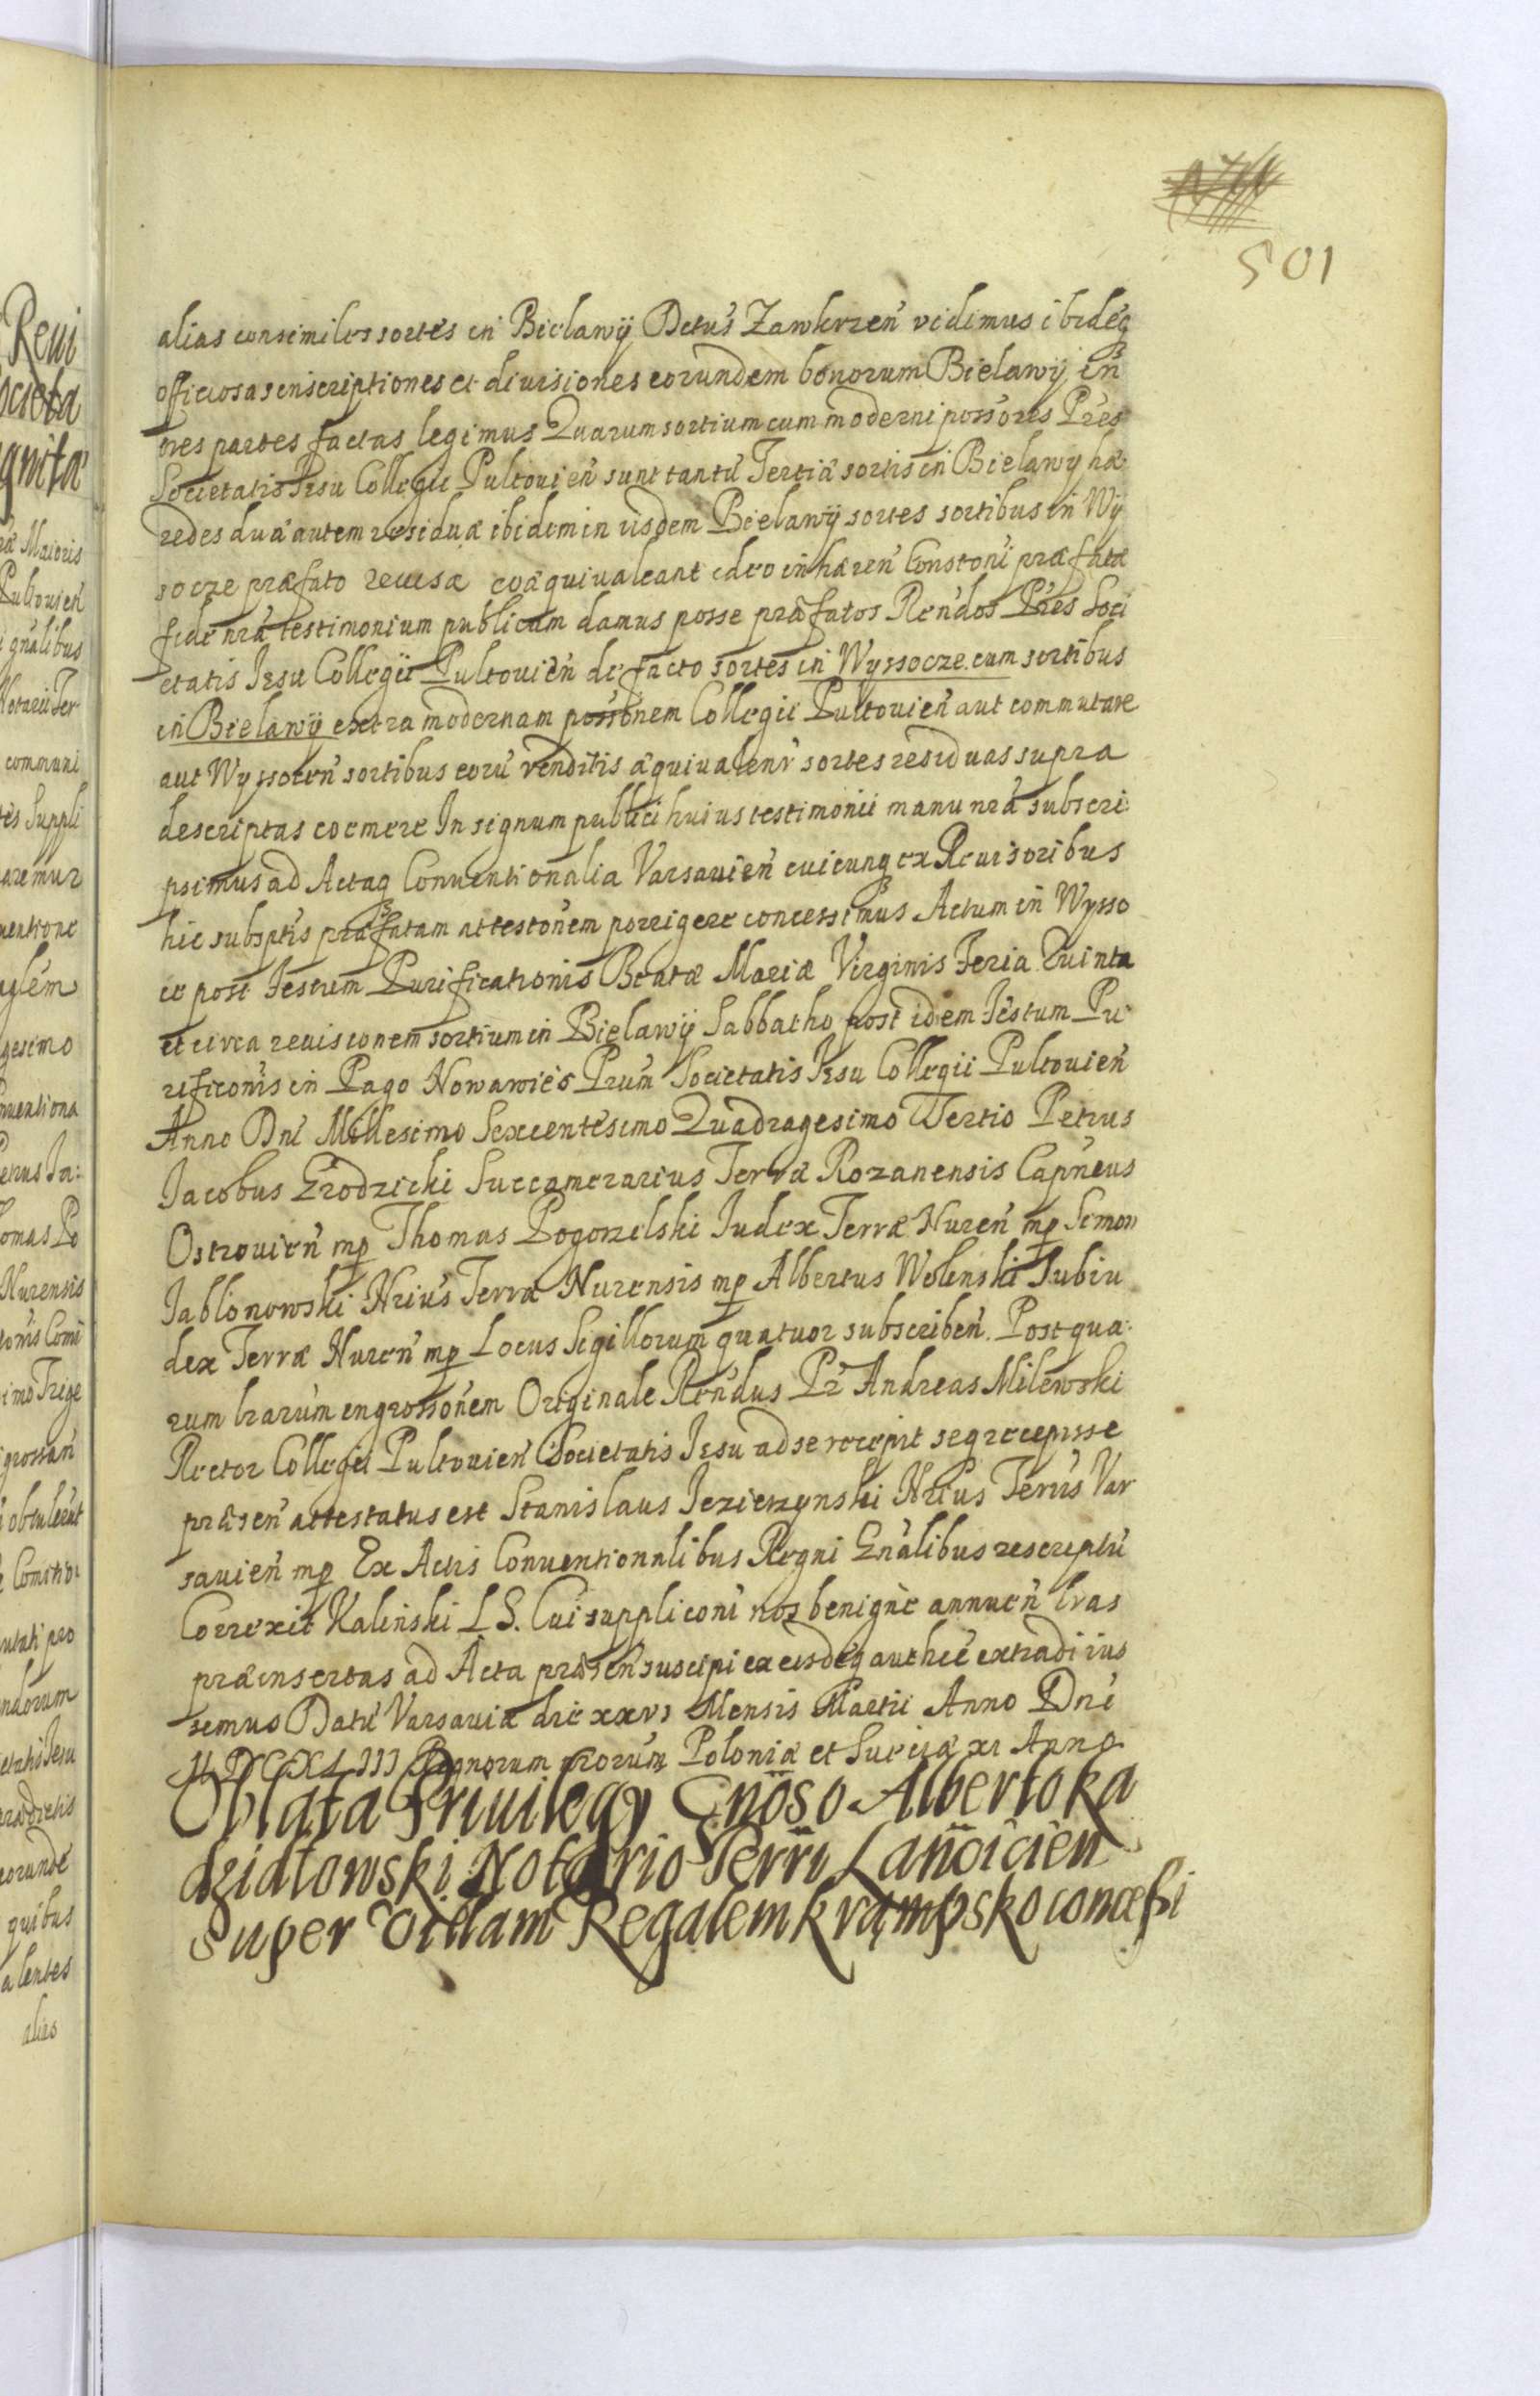 501
alias consimiles sortes in Bielawÿ Dctus Zawkrzen̄ vidimus ibidēq
officiosas inscriptiones et diuisiones eorundem bonorum Bielawÿ in
ōnes partes factas legimus Quarum sortium cum moderni possōres Pr̄es
Societatis Jesu Collegii Pultouien̄ sunt tantū Tertiæ sortis in Bielawÿ hæ
redes duæ autem residuæ ibidem in iisdem Bielawÿ sortes sortibus in Wÿ
socze præfato reuisæ coæquiualeant ideo inhæren̄ Constōni præfatæ
fide nr̄a testimonium publicum damus posse præfatos Ren̄dos Pr̄es Soci
etatis Jesu Collegii Pultouien̄ de facto sortes in Wyssocze cum sortibus
in Bielawÿ extra modernam possōnem Collegii Pultouien̄ aut commutare
aut Wyssocen̄ sortibus eorū venditis æquiualen̄ sortes residuas supra
descriptas coemere In signum publici huius testimonii manu nr̄a subscri
psimus ad Actaq Conuentionalia Varsauien̄ cuicunq ex Reuisoribus
hic subsptis præfatam attestōnem porrigere concessimus Actum in Wysso
ce post Festum Purificationis Beatæ Mariæ Virginis Feria Quinta
et circa reuisionem sortium in Bielawÿ Sabbatho post idem Festum Pu
rificōnis in Pago Nowawies Prūm Societatis Jesu Collegii Pultouien̄
Anno Dnī Millesimo Sexcentesimo Quadragesimo Tertio Petrus
Jacobus Grodzicki Succamerarius Terræ Rozanensis Capn̄eus
Ostrouien̄ mp Thomas Pogorzelski Judex Terræ Nuren̄ mp Simon
Jablonowski Nrīus Terræ Nurensis mp Albertus Wolinski Subiu
dex Terræ Nuren̄ mp Locus Sigillorum quatuor subscriben̄. Post qua
rum lrarūm ingrossōnem Originale Rn̄dus Pr̄ Andreas Milewski
Rector Collegii Pultouien̄ Societatis Jesu ad se recepit seq recepisse
præsen̄ attestatus est Stanislaus Jezierzynski Nrīus Terrīs Var
sauien̄ mp Ex Actis Conuentionalibus Regni Gn̄alibus rescriptū
Correxit Kalinski L S. Cui supplicōni nos benignè annuen̄ lr̄as
præinsertas ad Acta præsen̄ suscipi ex eisdēq authēc extradi ius
semus Datū Varsauiæ die xxvi Mensis Martii Anno Dnī
M DCXLIII Regnorum nr̄orum Poloniæ et Sueciæ xi Anno
Oblata Priuilegy Gnōso Alberto Ka
dzidłowski Notario Terr̄i Lan̄cicien̄
Super Villam Regalem Krąmpsko concessi